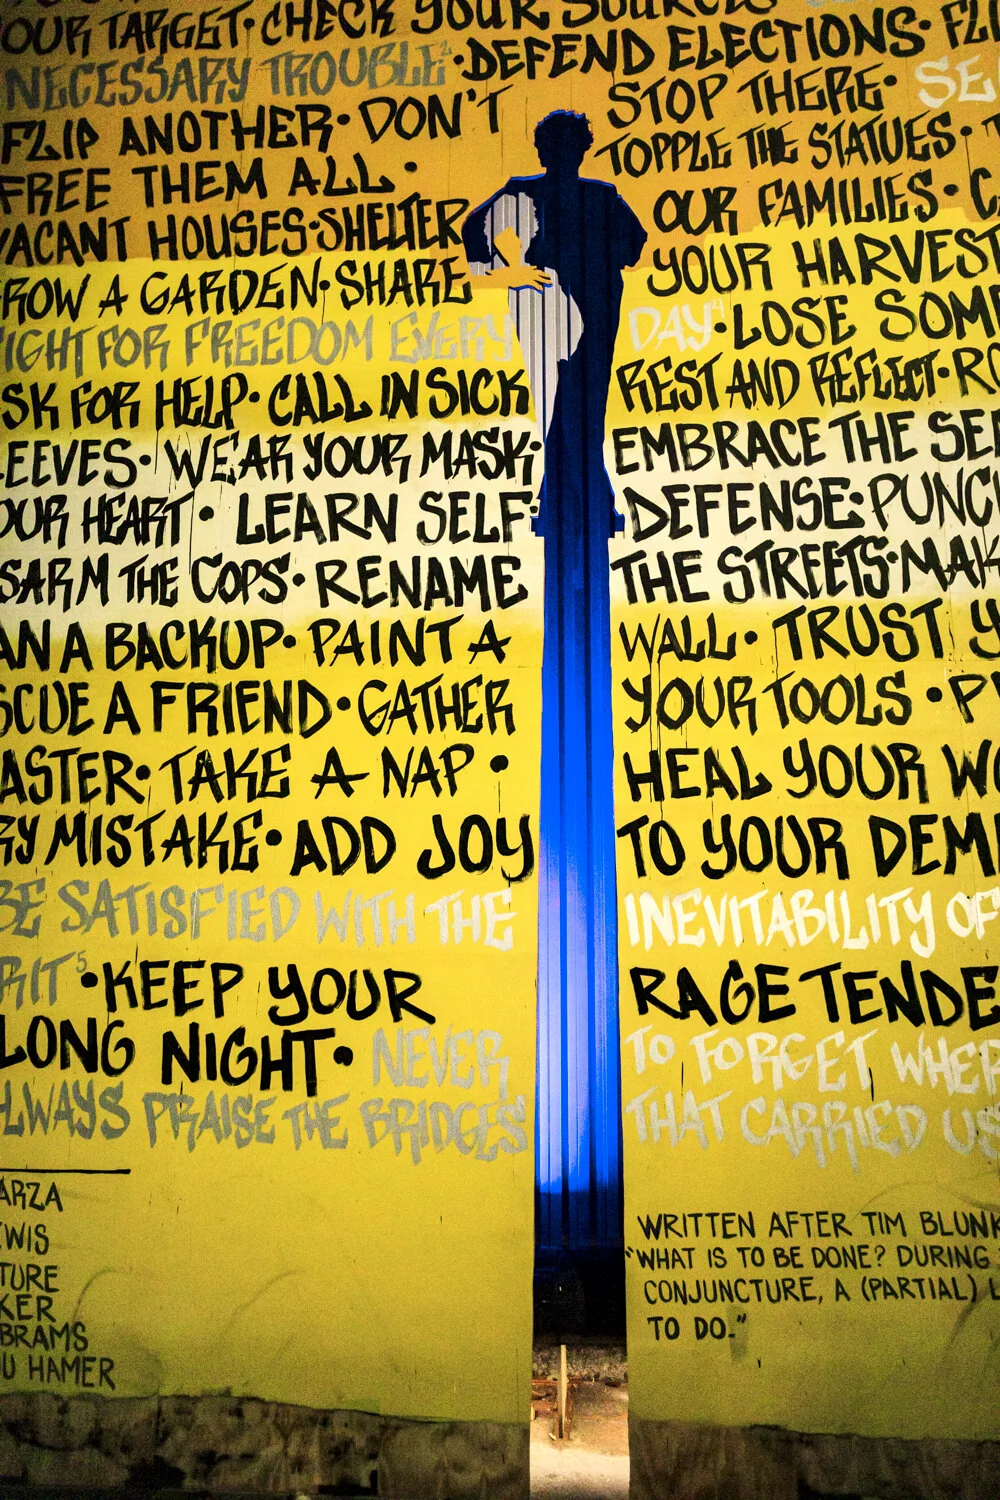 OUR TARGET · CHECK YOUR SOURCES
NECESSARY TROUBLE² · DEFEND ELECTIONS ·
FLIP ANOTHER · DON'T STOP THERE ·
FREE THEM ALL · TOPPLE THE STATUES ·
VACANT HOUSES · SHELTER OUR FAMILIES ·
ROW A GARDEN · SHARE YOUR HARVEST
IGHT FOR FREEDOM EVERY DAY⁴ · LOSE SOM
SK FOR HELP · CALL IN SICK REST AND REFLECT ·
LEEVES · WEAR YOUR MASK · EMBRACE THE
OUR HEART · LEARN SELF · DEFENSE · PUNC
SARM THE COPS · RENAME THE STREETS · MAK
AN A BACKUP · PAINT A WALL · TRUST Y
SCUE A FRIEND · GATHER YOUR TOOLS · P
ASTER · TAKE A NAP · HEAL YOUR WO
RY MISTAKE · ADD JOY TO YOUR DEM
BE SATISFIED WITH THE INEVITABILITY OF
RIT⁵ · KEEP YOUR RAGE TENDE
LONG NIGHT · NEVER TO FORGET WHER
ALWAYS PRAISE THE BRIDGES THAT CARRIED US
ARZA
EWIS
TURE
KER
BRAMS
OU HAMER
WRITTEN AFTER TIM BLUNK
"WHAT IS TO BE DONE? DURING
CONJUNCTURE, A (PARTIAL) L
TO DO."